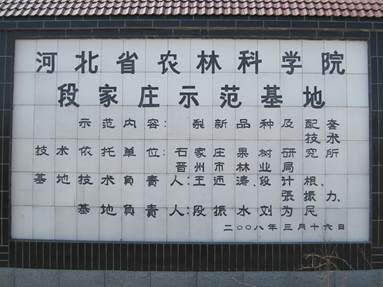 河北省农林科学院
段家庄示范基地
示范内容：梨新品种及配套
技术
技术依托单位：石家庄果树研究所
晋州市林业局
基地技术负责人：王迎涛、段计根、
張振力、
基地负责人：段振水 刘为民
二〇〇八年三月十六日